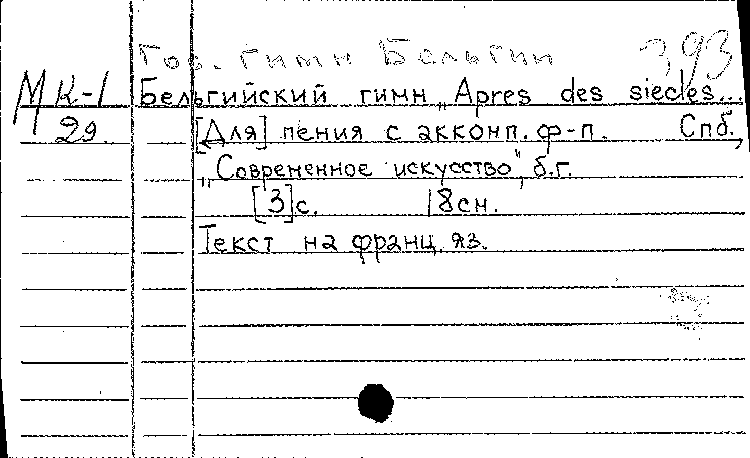 Гос. гимн Бельгии 793
МК-1 Бельгийский гимн „Apres des siecles...
29. [Для] пения с аккомп. ф-п. Спб.,
„Современное искусство", б.г.
[3]с. 18см.
Текст на франц. яз.